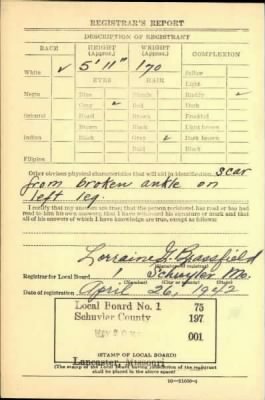 REGISTRAR'S REPORT
DESCRIPTION OF REGISTRANT
RACE HEIGHT (Approx.) WEIGHT (Approx.) COMPLEXION
White ✓ 5' 11" 170 Sallow
EYES HAIR Light
Negro Blue Blonde Ruddy ✓
Gray ✓ Red Dark
Oriental Hazel Brown Freckled
Brown Black Light brown
Indian Black Gray ✓ Dark brown
Bald Black
Filipino
Other obvious physical characteristics that will aid in identification scar
from broken ankle on
left leg.
I certify that my answers are true; that the person registered has read or has had
read to him his own answers; that I have witnessed his signature or mark and that
all of his answers of which I have knowledge are true, except as follows:
Lorraine G. Brassfield
(Signature of registrar)
Registrar for Local Board 1 Schuyler Mo.
(Number) (City or county) (State)
Date of registration April 26, 1942
Local Board No. 1 75
Schuyler County 197
001
Lancaster, Missouri
(STAMP OF LOCAL BOARD)
(The stamp of the Local Board having jurisdiction of the registrant
shall be placed in the above space)